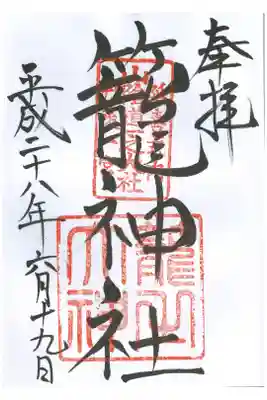 奉拝
籠神社
平成二十八年六月十九日